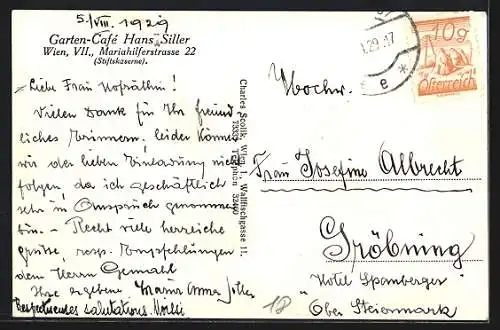 5./VIII. 1929
Garten-Café Hans Siller
Wien, VII., Mariahilferstrasse 22
(Stiftskaserne).
Liebe Frau Hofrätin!
Vielen Dank für Ihr freund
liches Erinnern, leider können
wir der lieben Einladung nicht
folgen, da ich geschäftlich
sehr in Anspruch genommen
bin. - Recht viele herzliche
Grüße, resp. Empfehlungen
dem Herrn Gemahl
Ihre ergebene Anna
Respectueuses salutations.
Charles Scolik, Wien I., Wallfischgasse 11.
Telephon
.29.17
e *
10g
Österreich
Hochw.
Frau Josefine Albrecht
Gröbming
"Hotel Spanberger"
Ober Steiermark